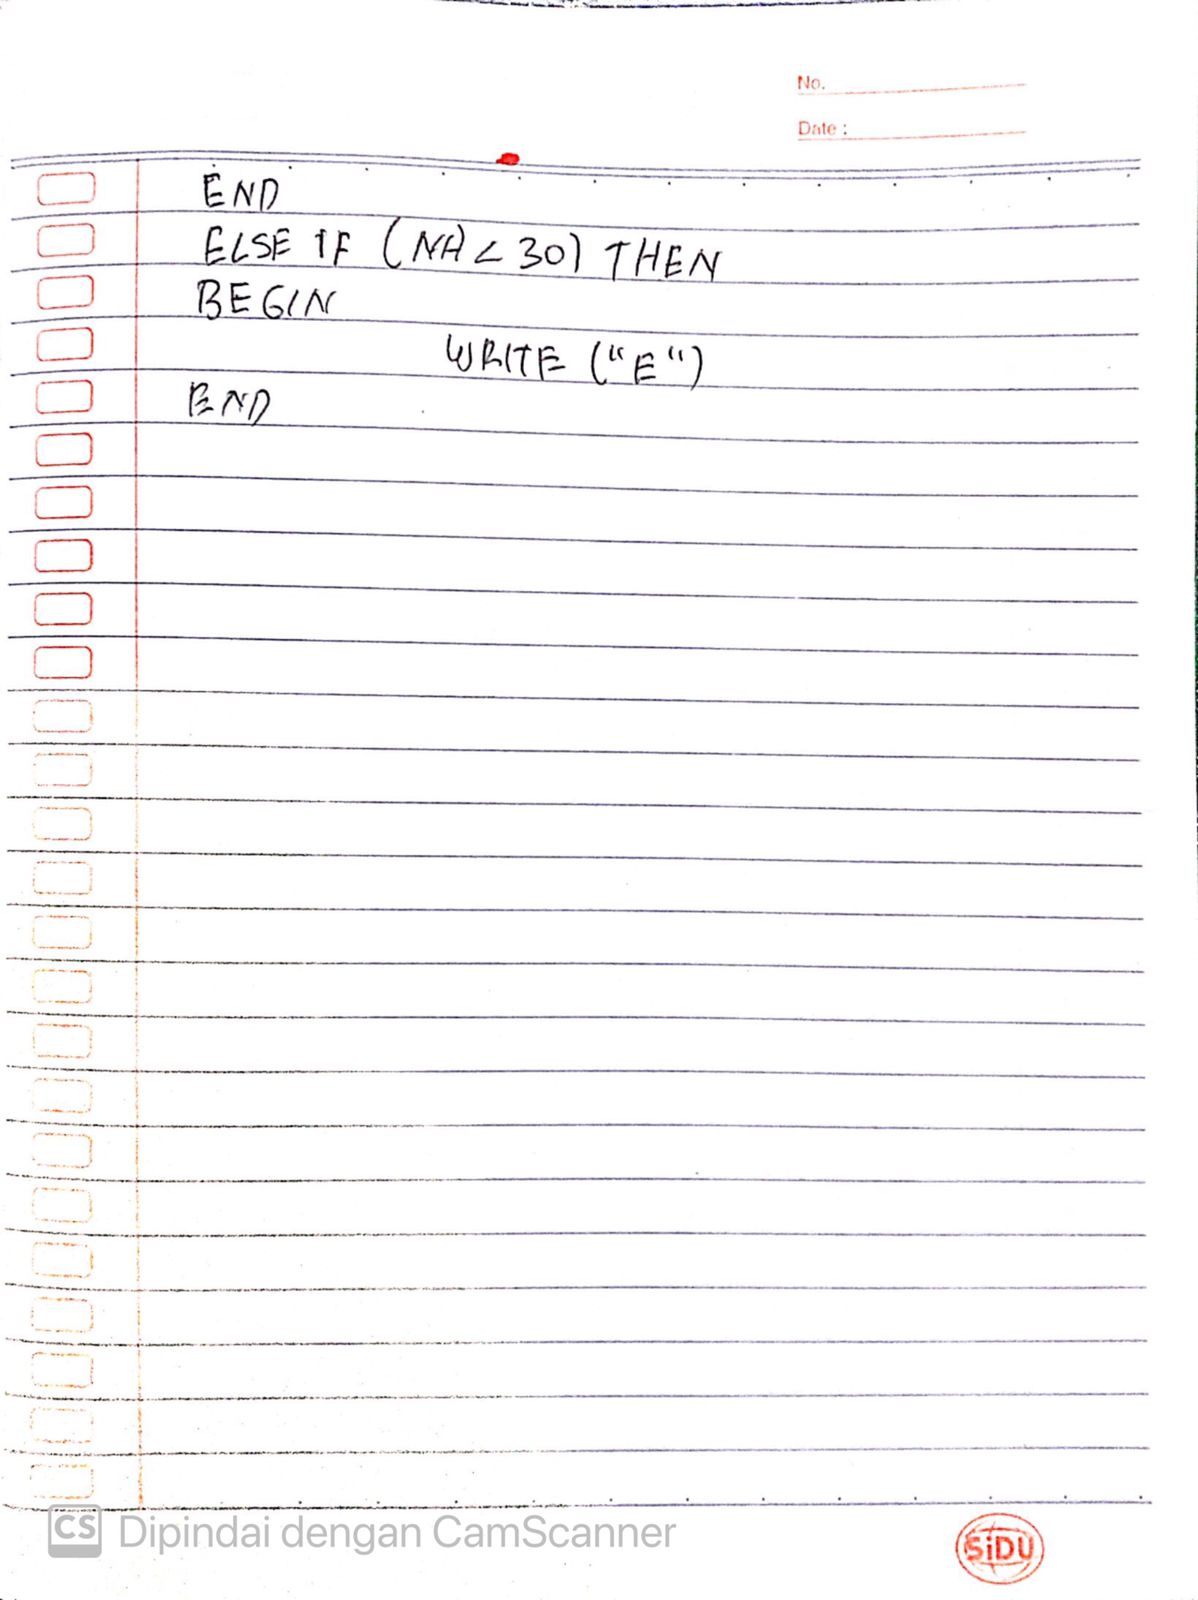 No.
Date :
END
ELSE IF (NA < 30) THEN
BEGIN
WRITE ("E")
END
CS Dipindai dengan CamScanner
SiDU